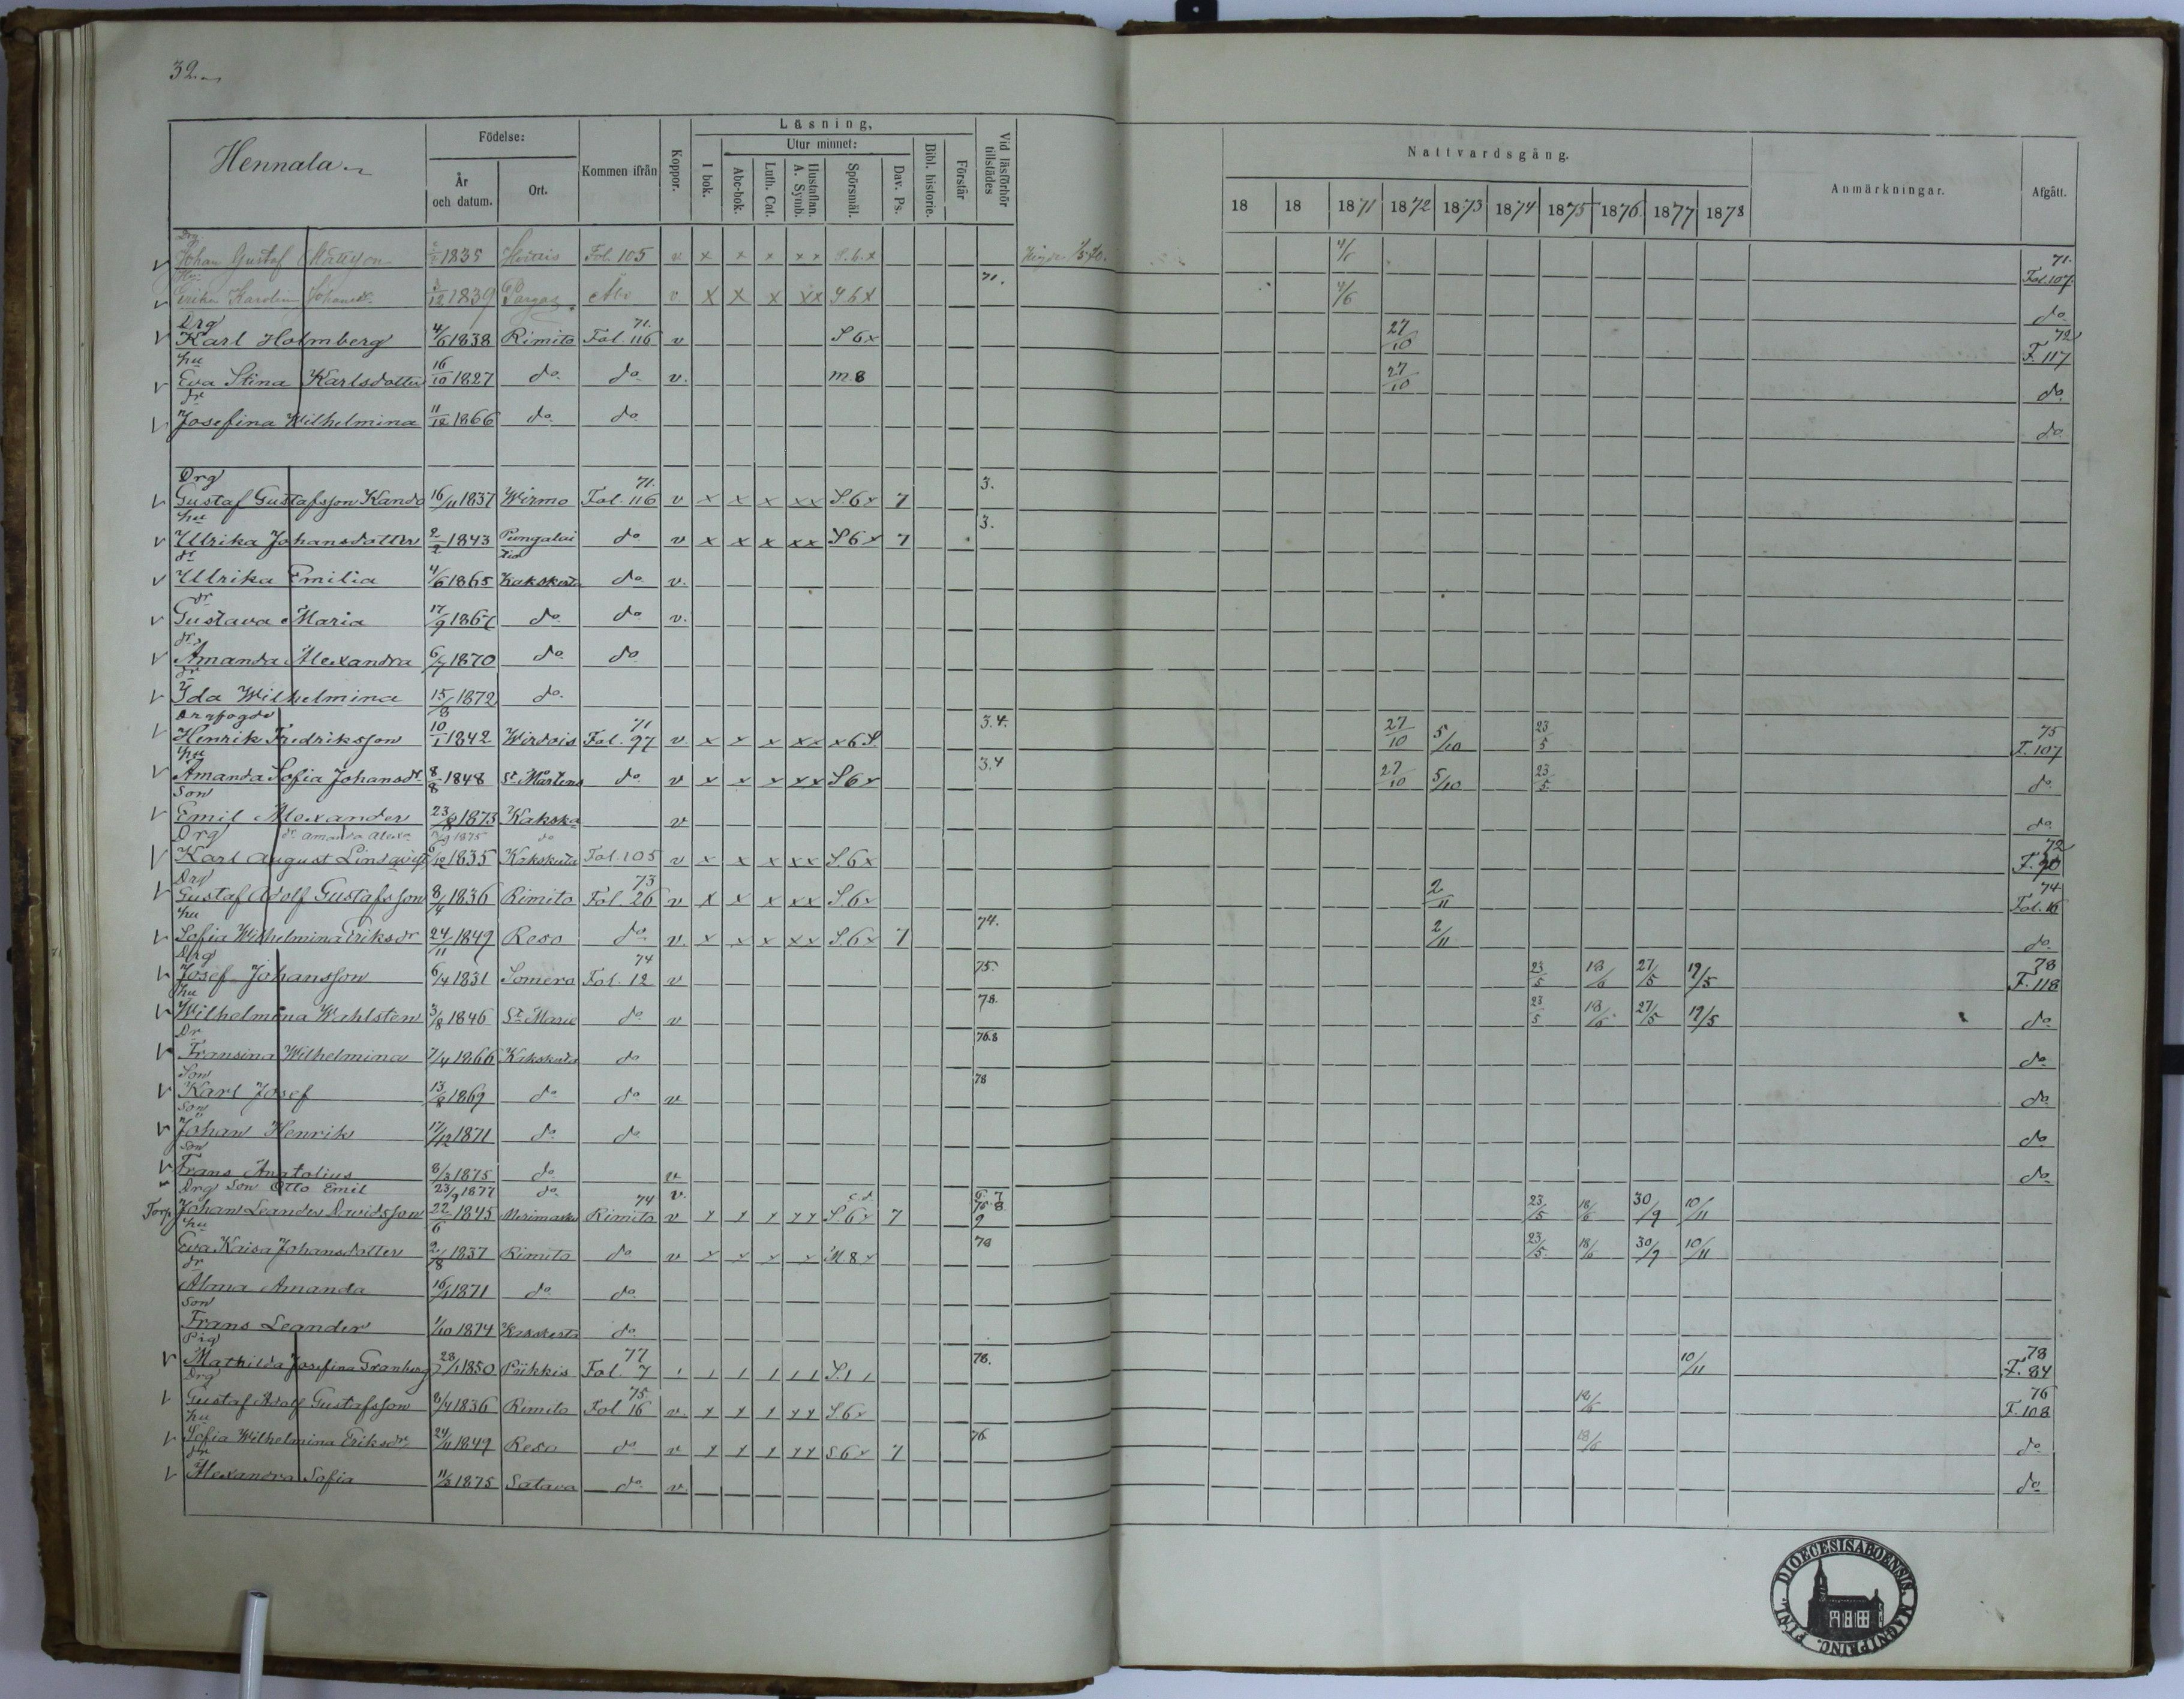 32.
Hennala.
Födelse:
År och datum.
Ort.
Kommen ifrån
Koppor.
Läsning,
I bok.
Utur minnet:
Abc-bok.
Luth. Cat.
Hustaflan. A. Symb.
Spörsmål.
Dav. Ps.
Bibl. historie.
Förstår
Vid läsförhör tillstädes
Nattvardsgång.
18 18 1871 1872 1873 1874 1875 1876 1877 1878
Anmärkningar.
Afgått.
Drg
Johan Gustaf Mattsson 1835 Fol. 105 v x x x xx S.6.x 4/6 71. Fol. 107.
Hu
Karolina Johansdr 12 1839 Pargas Åbo v. x x x xx S 6 x 71. 4/6 do
Drg
Karl Holmberg 4/6 1838 Rimito 71. Fol. 116 v S 6 x 27/10 72 F. 117
hu
Eva Stina Karlsdotter 16/10 1827 do do v. m. 8 27/10 do
dr
Josefina Wilhelmina 11/12 1866 do do do
Drg
Gustaf Gustafsson Kanda 16/11 1837 Wirmo 71. Fol. 116 v x x x xx S.6 x 7 3.
hu
Ullrika Johansdotter 2/2 1843 Pungalai tio do v x x x xx S 6 x 7 3.
dr
Ulrika Emilia 4/6 1865 Kakskerta do v.
dr
Gustava Maria 17/9 1867 do do v.
dr
Amanda Alexandra 6/7 1870 do do
dr
Ida Wilhelmina 15/8 1872 do
Drgfogde
Henrik Fredriksson 10/1 1842 Wirdois 71 Fol. 97 v x x x xx x 6 S. 3.4. 27/10 5/10 23/5 75 F. 107
hu
Amanda Sofia Johansdr 8/8 1848 St Mårtens do v x x x xx S 6 x 3.4 27/10 5/10 23/5 do
Son
Emil Alexander 23/8 1873 Kakska v do
dr Amanda Alexa. /9 1875 do
Drg
Karl August Lindqvist 6/12 1835 Kakskerta Fol. 105 v x x x xx S.6 x 72 F. 90
Drg
Gustaf Adolf Gustafsson 8/4 1836 Rimito 73 Fol. 26 v x x x xx S.6 x 2/11 74 Fol. 16
hu
Sofia Wilhelmina Eriksdr 24/11 1849 Reso do v. x x x xx S.6 x 7 74. 2/11 do
Drg
Josef Johansson 6/4 1831 Somero 74 Fol. 12 v 75. 23/5 18/6 27/5 19/5 78 F. 118
hu
Wilhelmina Wahlsten 3/8 1846 St Marie do v 78. 23/5 18/6 27/5 19/5 do
Dr
Fransina Wilhelmina 7/4 1866 Kakskerta do 76.8 do
Son
Karl Josef 13/8 1869 do do v 78 do
Son
Johan Henrik 17/12 1871 do do do
Son
Frans Anatolius 8/3 1875 do v do
Son Otto Emil 23/9 1877 do v.
Torp. Drg
Johan Leander Davidsson 22/6 1845 Merimasku 74 Rimito v x x x xx S.6 x 7 23/5 18/6 30/9 10/11
hu
Eva Kaisa Johansdotter 2/8 1837 Rimito do v x x x x M.8 x 78 23/5 18/6 30/9 10/11
dr
Alma Amanda 16/1 1871 do do
Son
Frans Leander 1/10 1874 Kakskerta do
Pig
Mathilda Josefina Granberg 28/1 1850 Piikkis 77 Fol. 7 78. 10/11 78 F. 84
Drg
Gustaf Adolf Gustafsson 8/4 1836 Rimito 75. Fol 16 v. x x x xx S 6 x 18/6 76 F. 108
hu
Sofia Wilhelmina Eriksdr 24/11 1849 Reso do v x x x xx S 6 x 7 76 18/6 do
dr
Alexandra Sofia 11/3 1875 Satava do v do
DIOECESIS ABOENSIS. MAGNI PRINC. FINL.